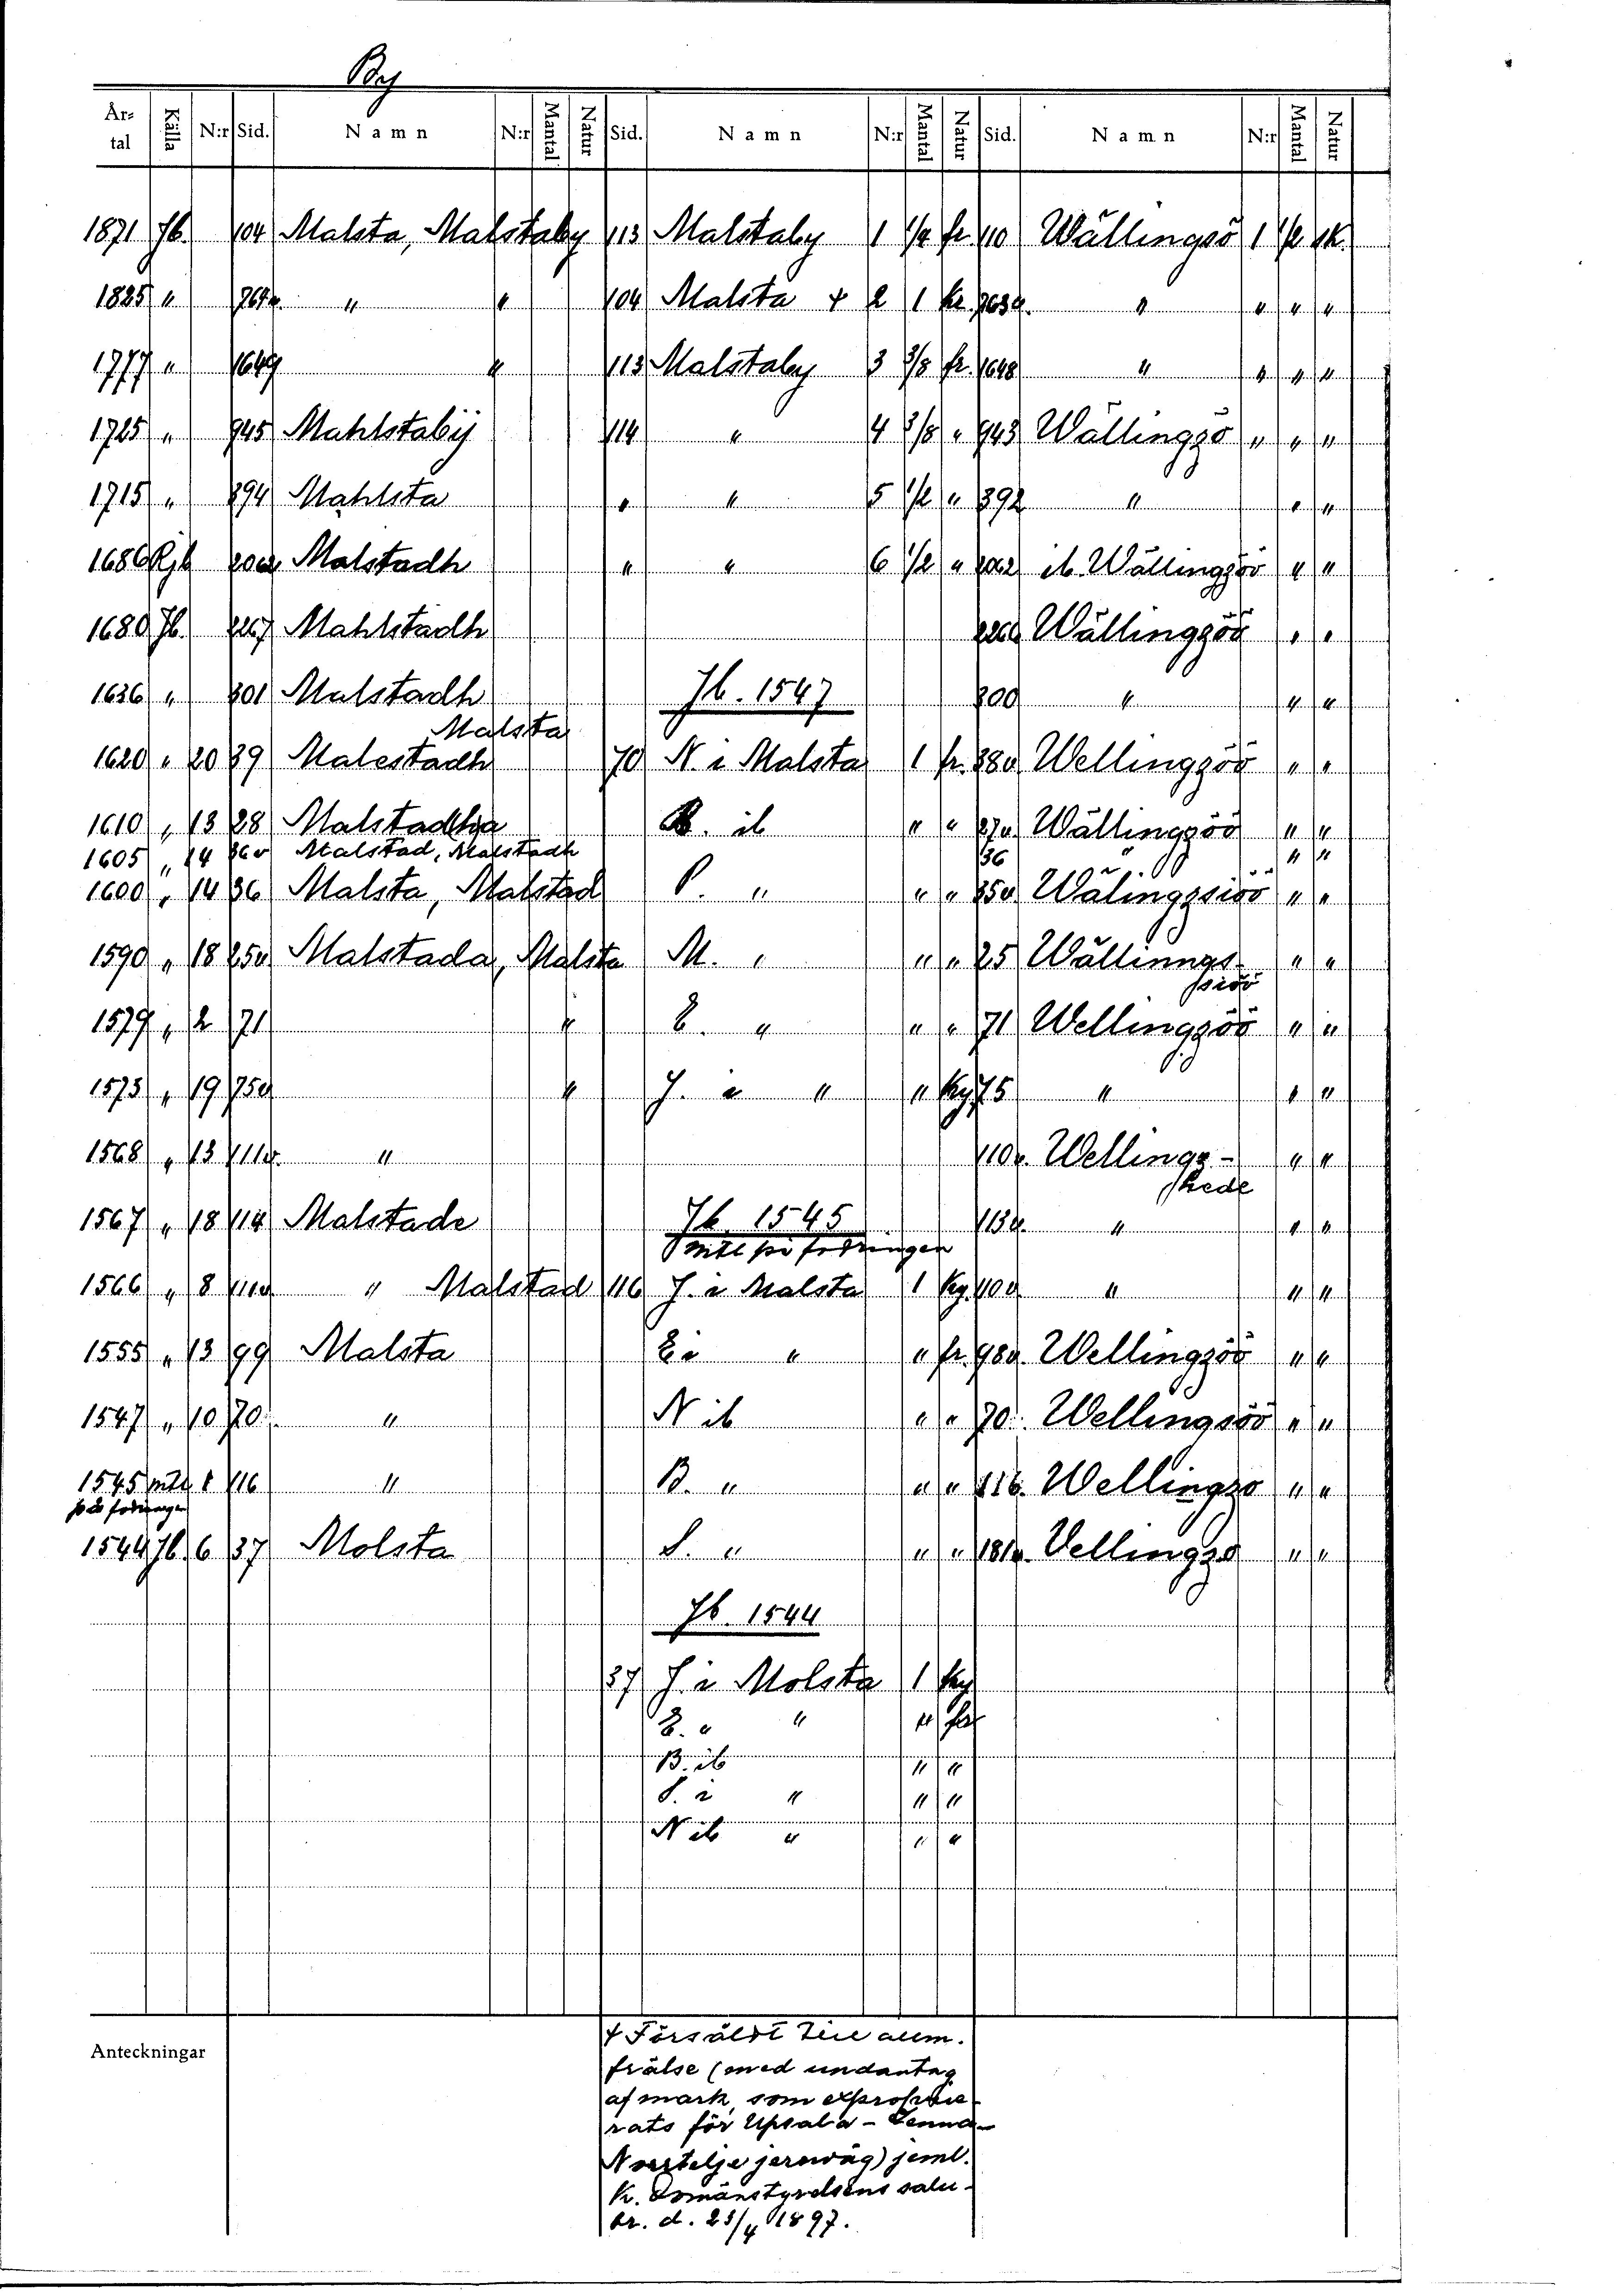 By
År-tal Källa N:r Sid. Namn N:r Mantal Natur Sid. Namn N:r Mantal Natur Sid. Namn N:r Mantal Natur
1871 Jb. 104 Malsta, Malstaby 113 Malstaby 1 1/4 fr. 110 Wällingsö 1 1/2 sk.
1825 " 764v. " " 104 Malsta + 2 1 kr. 763v. " " " "
1777 " 1649 " 113 Malstaby 3 3/8 fr. 1648 " " " "
1725 " 945 Mahlstabÿ 114 " 4 3/8 " 943 Wällingzö " " "
1715 " 894 Mahlsta " " 5 1/2 " 892 " " "
1686 Rjb 2062 Malstadh " " 6 1/2 " 2062 ib. Wällingzöö " "
1680 Jb. 2267 Mahlstadh 2266 Wällingzöö " "
1636 " 801 Malstadh Jb. 1547 800 " " "
Malsta
1620 " 20 39 Malestadh 70 N. i Malsta 1 fr. 380 Wellingzöö " "
1610 " 13 28 Malstadha B. ib " " 27v. Wällingzöö " "
1605 " 14 36v Malstad, Malstadh 36 " " "
1600 " 14 36 Malsta, Malstad P. " " " 35v Wälingzsiöö " "
1590 " 18 25v Malstada, Malsta M. " " " 25 Wällinngs-
siöö " "
1579 " 2 71 " E. " " " 71 Wellingzöö " "
1573 " 19 75v " J. i " " Ky 75 " " "
1568 " 13 111v. " 110v. Wellings-
skede " "
1567 " 18 114 Malstade Jb. 1545 113v. " " "
mtl på fodringen
1566 " 8 111v " Malstad 116 J. i Malsta 1 Ky. 110v " " "
1555 " 13 99 Malsta E i " " fr. 98v. Wellingzöö " "
1547 " 10 70 " N ib " " 70. Wellingsöö " "
1545 mtl 1 116 " B. " " " 116. Wellingzo " "
på fodringen
1544 Jb. 6 37 Molsta S. " " " 181v. Vellingzo " "
Jb. 1544
37 J. i Molsta 1 Ky
E. " " "
B. ib " "
S. i " " "
N ib " " "
Anteckningar
+ Försåldt till allm.
frälse (med undantag
af mark, som exproprie-
rats för Upsala - Lenna-
Norrtelje jernväg) jeml.
K. Domänstyrelsens salu-
br. d. 23/4 1897.